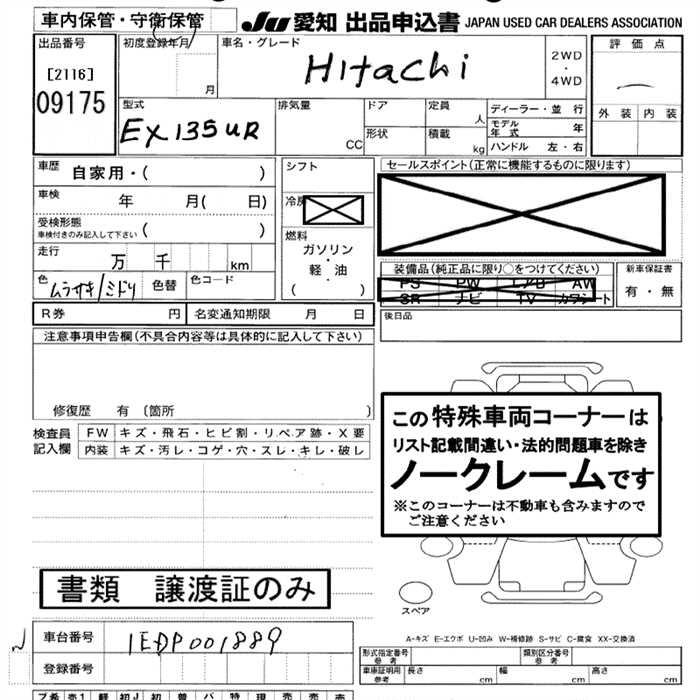 車内保管・守衛保管
JU 愛知 出品申込書 JAPAN USED CAR DEALERS ASSOCIATION
出品番号
[2116]
09175
初度登録年月
月
車名・グレード
HItachi
2WD
・
4WD
評価点
外装 内装
型式
EX135UR
排気量
CC
ドア
形状
定員
人
積載
kg
ディーラー・並行
モデル年式 年
ハンドル 左・右
車歴 自家用・( )
車検 年 月( 日)
受検形態
車検付きのみ記入して下さい ( )
走行 万 千 km
色 ムラサキ/ミドリ 色替 色コード
シフト
冷房
燃料
ガソリン
・
軽・油
( )
セールスポイント(正常に機能するものに限ります)
装備品(純正品に限り○をつけてください)
PS PW エアB AW
SR ナビ TV カワシート
新車保証書
有・無
R券 円 名変通知期限 月 日
後日品
注意事項申告欄(不具合内容等は具体的に記入して下さい)
修復歴 有 〔箇所 〕
検査員記入欄
FW キズ・飛石・ヒビ割・リペア跡・X要
内装 キズ・汚レ・コゲ・穴・スレ・キレ・破レ
この特殊車両コーナーは
リスト記載間違い・法的問題車を除き
ノークレームです
※このコーナーは不動車も含みますので
ご注意ください
書類 譲渡証のみ
スペア
A-キズ E-エクボ U-凹み W-補修跡 S-サビ C-腐食 XX-交換済
車台番号 1EDP001889
登録番号
型式指定番号
参考
類別区分番号
参考
車庫証明用
参考
長さ cm 幅 cm 高さ cm